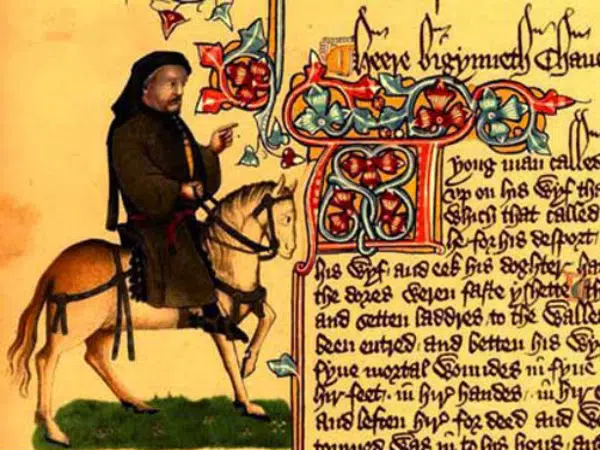 Heere bigynneth Chauc
A yong man called
vp on his wyf tha
which that called
he for his desport
his wyf and eek his doghter ha
the dores weren faste yshette th
and setten laddres to the walle
been entred and betten his wy
fyue mortal woundes in fyue
hir feet in hir handes in hir e
and leften hir for deed and we
tourned was in to his hous and